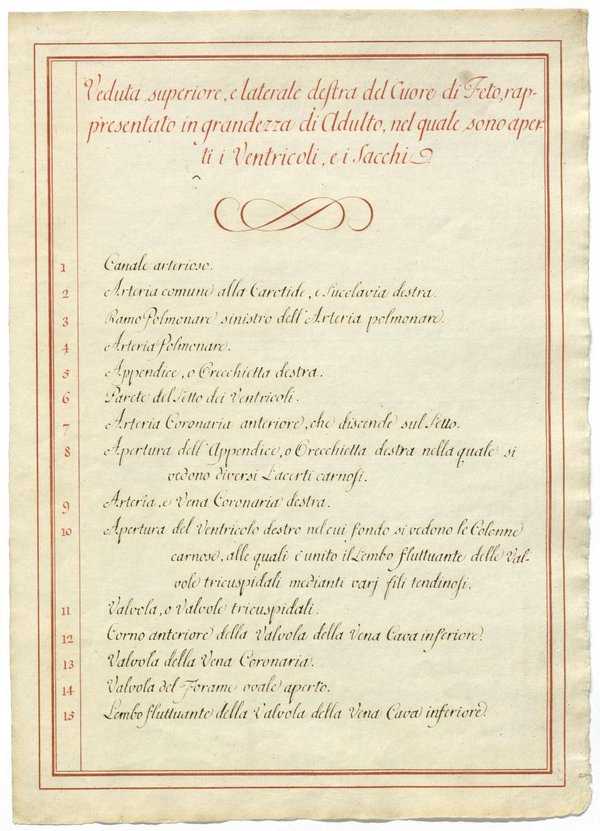 Veduta superiore, e laterale destra del Cuore di Feto, rap-
presentato in grandezza di Adulto, nel quale sono aper-
ti i Ventricoli, e i Sacchi
1 Canale arterioso.
2 Arteria comune alla Carotide, e Succlavia destra.
3 Ramo Polmonare sinistro dell'Arteria polmonare.
4 Arteria Polmonare.
5 Appendice, o Orecchietta destra.
6 Parete del Setto dei Ventricoli.
7 Arteria Coronaria anteriore, che discende sul Setto.
8 Apertura dell'Appendice, o Orecchietta destra nella quale si
vedono diversi Lacerti carnosi.
9 Arteria, e Vena Coronaria destra.
10 Apertura del Ventricolo destro nel cui fondo si vedono le Colonne
carnose, alle quali è unito il Lembo fluttuante delle Val-
vole tricuspidali medianti varj fili tendinosi.
11 Valvola, o Valvole tricuspidali.
12 Corno anteriore della Valvola della Vena Cava inferiore.
13 Valvola della Vena Coronaria.
14 Valvola del Forame ovale aperto.
15 Lembo fluttuante della Valvola della Vena Cava inferiore.